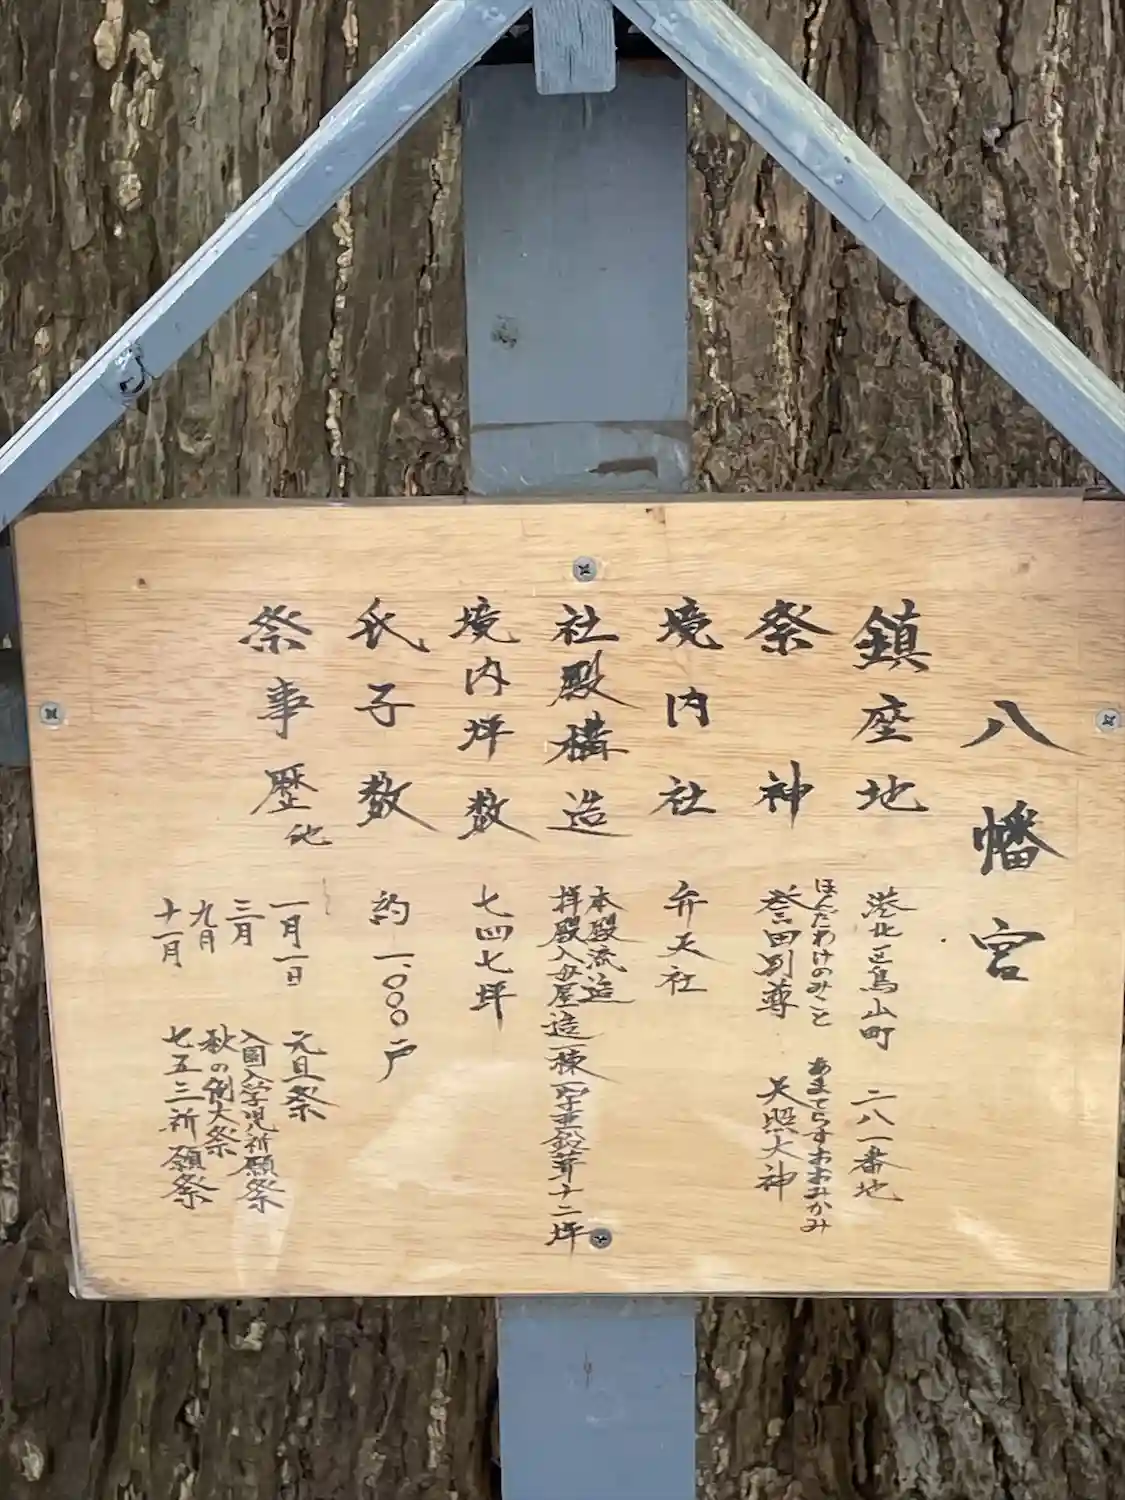 八幡宮
鎮座地 港北区鳥山町 二八一番地
祭神 誉田別尊 天照大神
ほんだわけのみこと あまてらすおおみかみ
境内社 弁天社
社殿構造 本殿流造
拝殿入母屋造一棟一宇亜鉛葺十二坪
境内坪数 七四七坪
氏子数 約一、〇〇〇戸
祭事歴他 一月一日 元旦祭
三月 入園入学児祈願祭
九月 秋の例大祭
十一月 七五三祈願祭